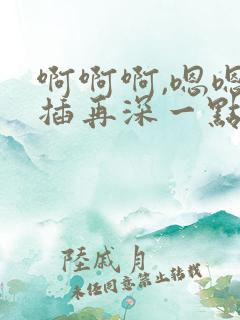 啊啊啊,嗯嗯
插再深一點
陸戚月
未经同意禁止转载